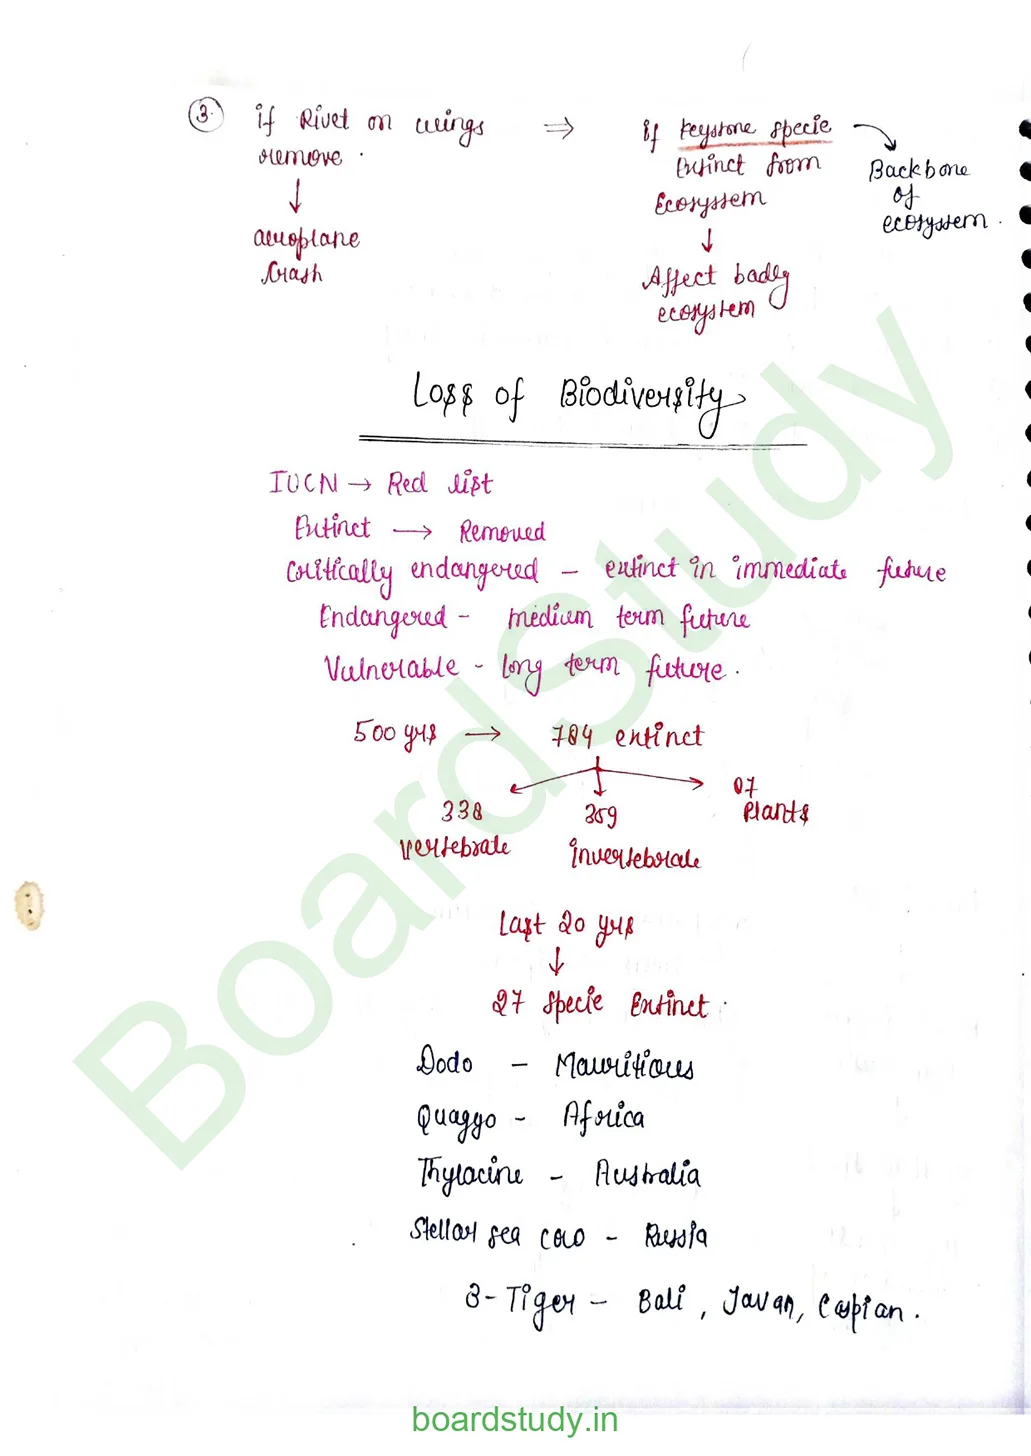 3. if Rivet on wings ⇒ if keystone specie
remove.
Extinct from
Backbone
of
ecosystem.
Ecosystem
↓
↓
aeroplane
Crash
Affect badly
ecosystem
Loss of Biodiversity
IUCN → Red list
Extinct → Removed
Critically endangered – extinct in immediate future
Endangered – medium term future
Vulnerable – long term future.
500 yrs → 784 extinct
338
vertebrate
359
invertebrate
07
Plants
Last 20 yrs
↓
27 Specie Extinct.
Dodo – Mauritious
Quaggo – Africa
Thylacine – Australia
Stellar sea cow – Russia
3 – Tiger – Bali, Javan, Caspian.
BoardStudy
boardstudy.in